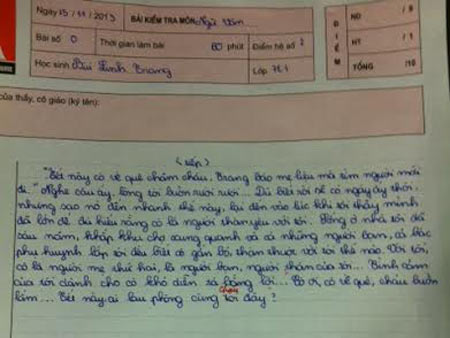 Ngày 15 / 11 / 2013 BÀI KIỂM TRA MÔN: Ngữ Văn
Bài số 0 Thời gian làm bài 80 phút Điểm hệ số 2
Học sinh Linh Trang Lớp 7E1
ĐIỂM
ND / 9
HT / 1
TỔNG /10
của thầy, cô giáo (ký tên):
(tiếp)
"Tết này cô về quê chăm cháu, Trang bảo mẹ liệu mà tìm người mới
đi." Nghe câu ấy, lòng tôi buồn rười rượi... Dù biết rồi sẽ có ngày ấy thôi,
nhưng sao nó đến nhanh thế này, lại đến vào lúc khi tôi thấy mình
đã lớn để đủ hiểu rằng cô là người thân yêu với tôi. Sống ở nhà tôi đã
sáu năm, khắp khu chợ xung quanh và cả những người bạn, cả bác
phụ huynh lớp tôi đều biết cô gắn bó, thân thuộc với tôi thế nào. Với tôi,
cô là người mẹ thứ hai, là người bạn, người thân của tôi... Tình cảm
của tôi dành cho cô khó diễn tả bằng lời... Cô ơi, cô về quê, cháu buồn
lắm... Tết này ai lau phòng cùng tôi đây?
cháu